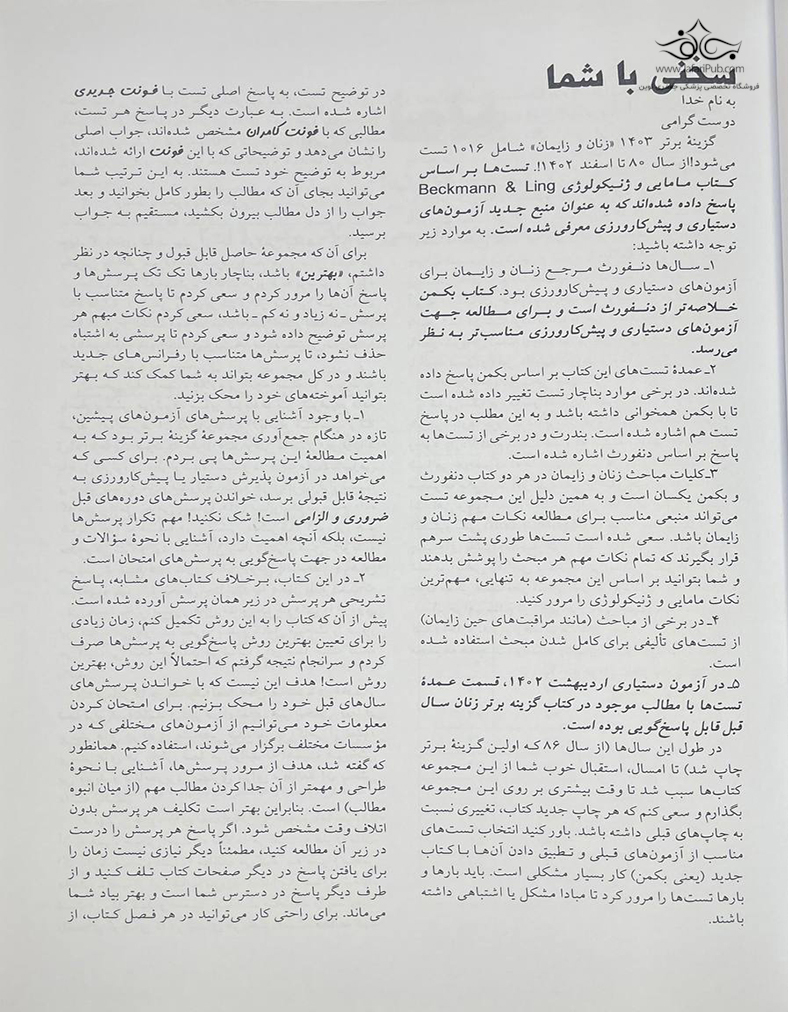 www.JafariPub.com
سخنی با شما
به نام خدا
دوست گرامی
گزینهٔ برتر ۱۴۰۳ «زنان و زایمان» شامل ۱۰۱۶ تست
می‌شود!از سال ۸۰ تا اسفند ۱۴۰۲!. تست‌ها بر اساس
کتاب مامایی و ژنیکولوژی Beckmann & Ling
پاسخ داده شده‌اند که به عنوان منبع جدید آزمون‌های
دستیاری و پیش‌کارورزی معرفی شده است. به موارد زیر
توجه داشته باشید:
۱ـ سال‌ها دنفورث مرجع زنان و زایمان برای
آزمون‌های دستیاری و پیش‌کارورزی بود. کتاب بکمن
خلاصه‌تر از دنفورث است و برای مطالعه جهت
آزمون‌های دستیاری و پیش‌کارورزی مناسب‌تر به نظر
می‌رسد.
۲ـ عمدهٔ تست‌های این کتاب بر اساس بکمن پاسخ داده
شده‌اند. در برخی موارد بناچار تست تغییر داده شده است
تا با بکمن همخوانی داشته باشد و به این مطلب در پاسخ
تست هم اشاره شده است. بندرت و در برخی از تست‌ها به
پاسخ بر اساس دنفورث اشاره شده است.
۳ـ کلیات مباحث زنان و زایمان در هر دو کتاب دنفورث
و بکمن یکسان است و به همین دلیل این مجموعه تست
می‌تواند منبعی مناسب برای مطالعه نکات مهم زنان و
زایمان باشد. سعی شده است تست‌ها طوری پشت سرهم
قرار بگیرند که تمام نکات مهم هر مبحث را پوشش بدهند
و شما بتوانید بر اساس این مجموعه به تنهایی، مهم‌ترین
نکات مامایی و ژنیکولوژی را مرور کنید.
۴ـ در برخی از مباحث (مانند مراقبت‌های حین زایمان)
از تست‌های تألیفی برای کامل شدن مبحث استفاده شده
است.
۵ـ در آزمون دستیاری اردیبهشت ۱۴۰۲، قسمت عمدهٔ
تست‌ها با مطالب موجود در کتاب گزینه برتر زنان سال
قبل قابل پاسخ‌گویی بوده است.
در طول این سال‌ها (از سال ۸۶ که اولین گزینهٔ برتر
چاپ شد) تا امسال، استقبال خوب شما از این مجموعه
کتاب‌ها سبب شد تا وقت بیشتری بر روی این مجموعه
بگذارم و سعی کنم که هر چاپ جدید کتاب، تغییری نسبت
به چاپ‌های قبلی داشته باشد. باور کنید انتخاب تست‌های
مناسب از آزمون‌های قبلی و تطبیق دادن آن‌ها با کتاب
جدید (یعنی بکمن) کار بسیار مشکلی است. باید بارها و
بارها تست‌ها را مرور کرد تا مبادا مشکل یا اشتباهی داشته
باشند.
در توضیح تست، به پاسخ اصلی تست با فونت جدیدی
اشاره شده است. به عبارت دیگر در پاسخ هر تست،
مطالبی که با فونت کامران مشخص شده‌اند، جواب اصلی
را نشان می‌دهد و توضیحاتی که با این فونت ارائه شده‌اند،
مربوط به توضیح خود تست هستند. به این ترتیب شما
می‌توانید بجای آن که مطالب را بطور کامل بخوانید و بعد
جواب را از دل مطالب بیرون بکشید، مستقیم به جواب
برسید.
برای آن که مجموعهٔ حاصل قابل قبول و چنانچه در نظر
داشتم، «بهترین» باشد، بناچار بارها تک تک پرسش‌ها و
پاسخ آن‌ها را مرور کردم و سعی کردم تا پاسخ متناسب با
پرسش ـ نه زیاد و نه کم ـ باشد، سعی کردم نکات مبهم هر
پرسش توضیح داده شود و سعی کردم تا پرسشی به اشتباه
حذف نشود، تا پرسش‌ها متناسب با رفرانس‌های جدید
باشند و در کل مجموعه بتواند به شما کمک کند که بهتر
بتوانید آموخته‌های خود را محک بزنید.
۱ـ با وجود آشنایی با پرسش‌های آزمون‌های پیشین،
تازه در هنگام جمع‌آوری مجموعهٔ گزینهٔ برتر بود که به
اهمیت مطالعهٔ این پرسش‌ها پی بردم. برای کسی که
می‌خواهد در آزمون پذیرش دستیار یا پیش‌کارورزی به
نتیجهٔ قابل قبولی برسد، خواندن پرسش‌های دوره‌های قبل
ضروری و الزامی است! شک نکنید! مهم تکرار پرسش‌ها
نیست، بلکه آنچه اهمیت دارد، آشنایی با نحوهٔ سؤالات و
مطالعه در جهت پاسخ‌گویی به پرسش‌های امتحان است.
۲ـ در این کتاب، برخلاف کتاب‌های مشابه، پاسخ
تشریحی هر پرسش در زیر همان پرسش آورده شده است.
پیش از آن که کتاب را به این روش تکمیل کنم، زمان زیادی
را برای تعیین بهترین روش پاسخ‌گویی به پرسش‌ها صرف
کردم و سرانجام نتیجه گرفتم که احتمالاً این روش، بهترین
روش است! هدف این نیست که با خواندن پرسش‌های
سال‌های قبل خود را محک بزنیم. برای امتحان کردن
معلومات خود می‌توانیم از آزمون‌های مختلفی که در
مؤسسات مختلف برگزار می‌شوند، استفاده کنیم. همانطور
که گفته شد، هدف از مرور پرسش‌ها، آشنایی با نحوهٔ
طراحی و مهمتر از آن جدا کردن مطالب مهم (از میان انبوه
مطالب) است. بنابراین بهتر است تکلیف هر پرسش بدون
اتلاف وقت مشخص شود. اگر پاسخ هر پرسش را درست
در زیر آن مطالعه کنید، مطمئناً دیگر نیازی نیست زمان را
برای یافتن پاسخ در دیگر صفحات کتاب تلف کنید و از
طرف دیگر پاسخ در دسترس شما است و بهتر بیاد شما
می‌ماند. برای راحتی کار می‌توانید در هر فصل کتاب، از